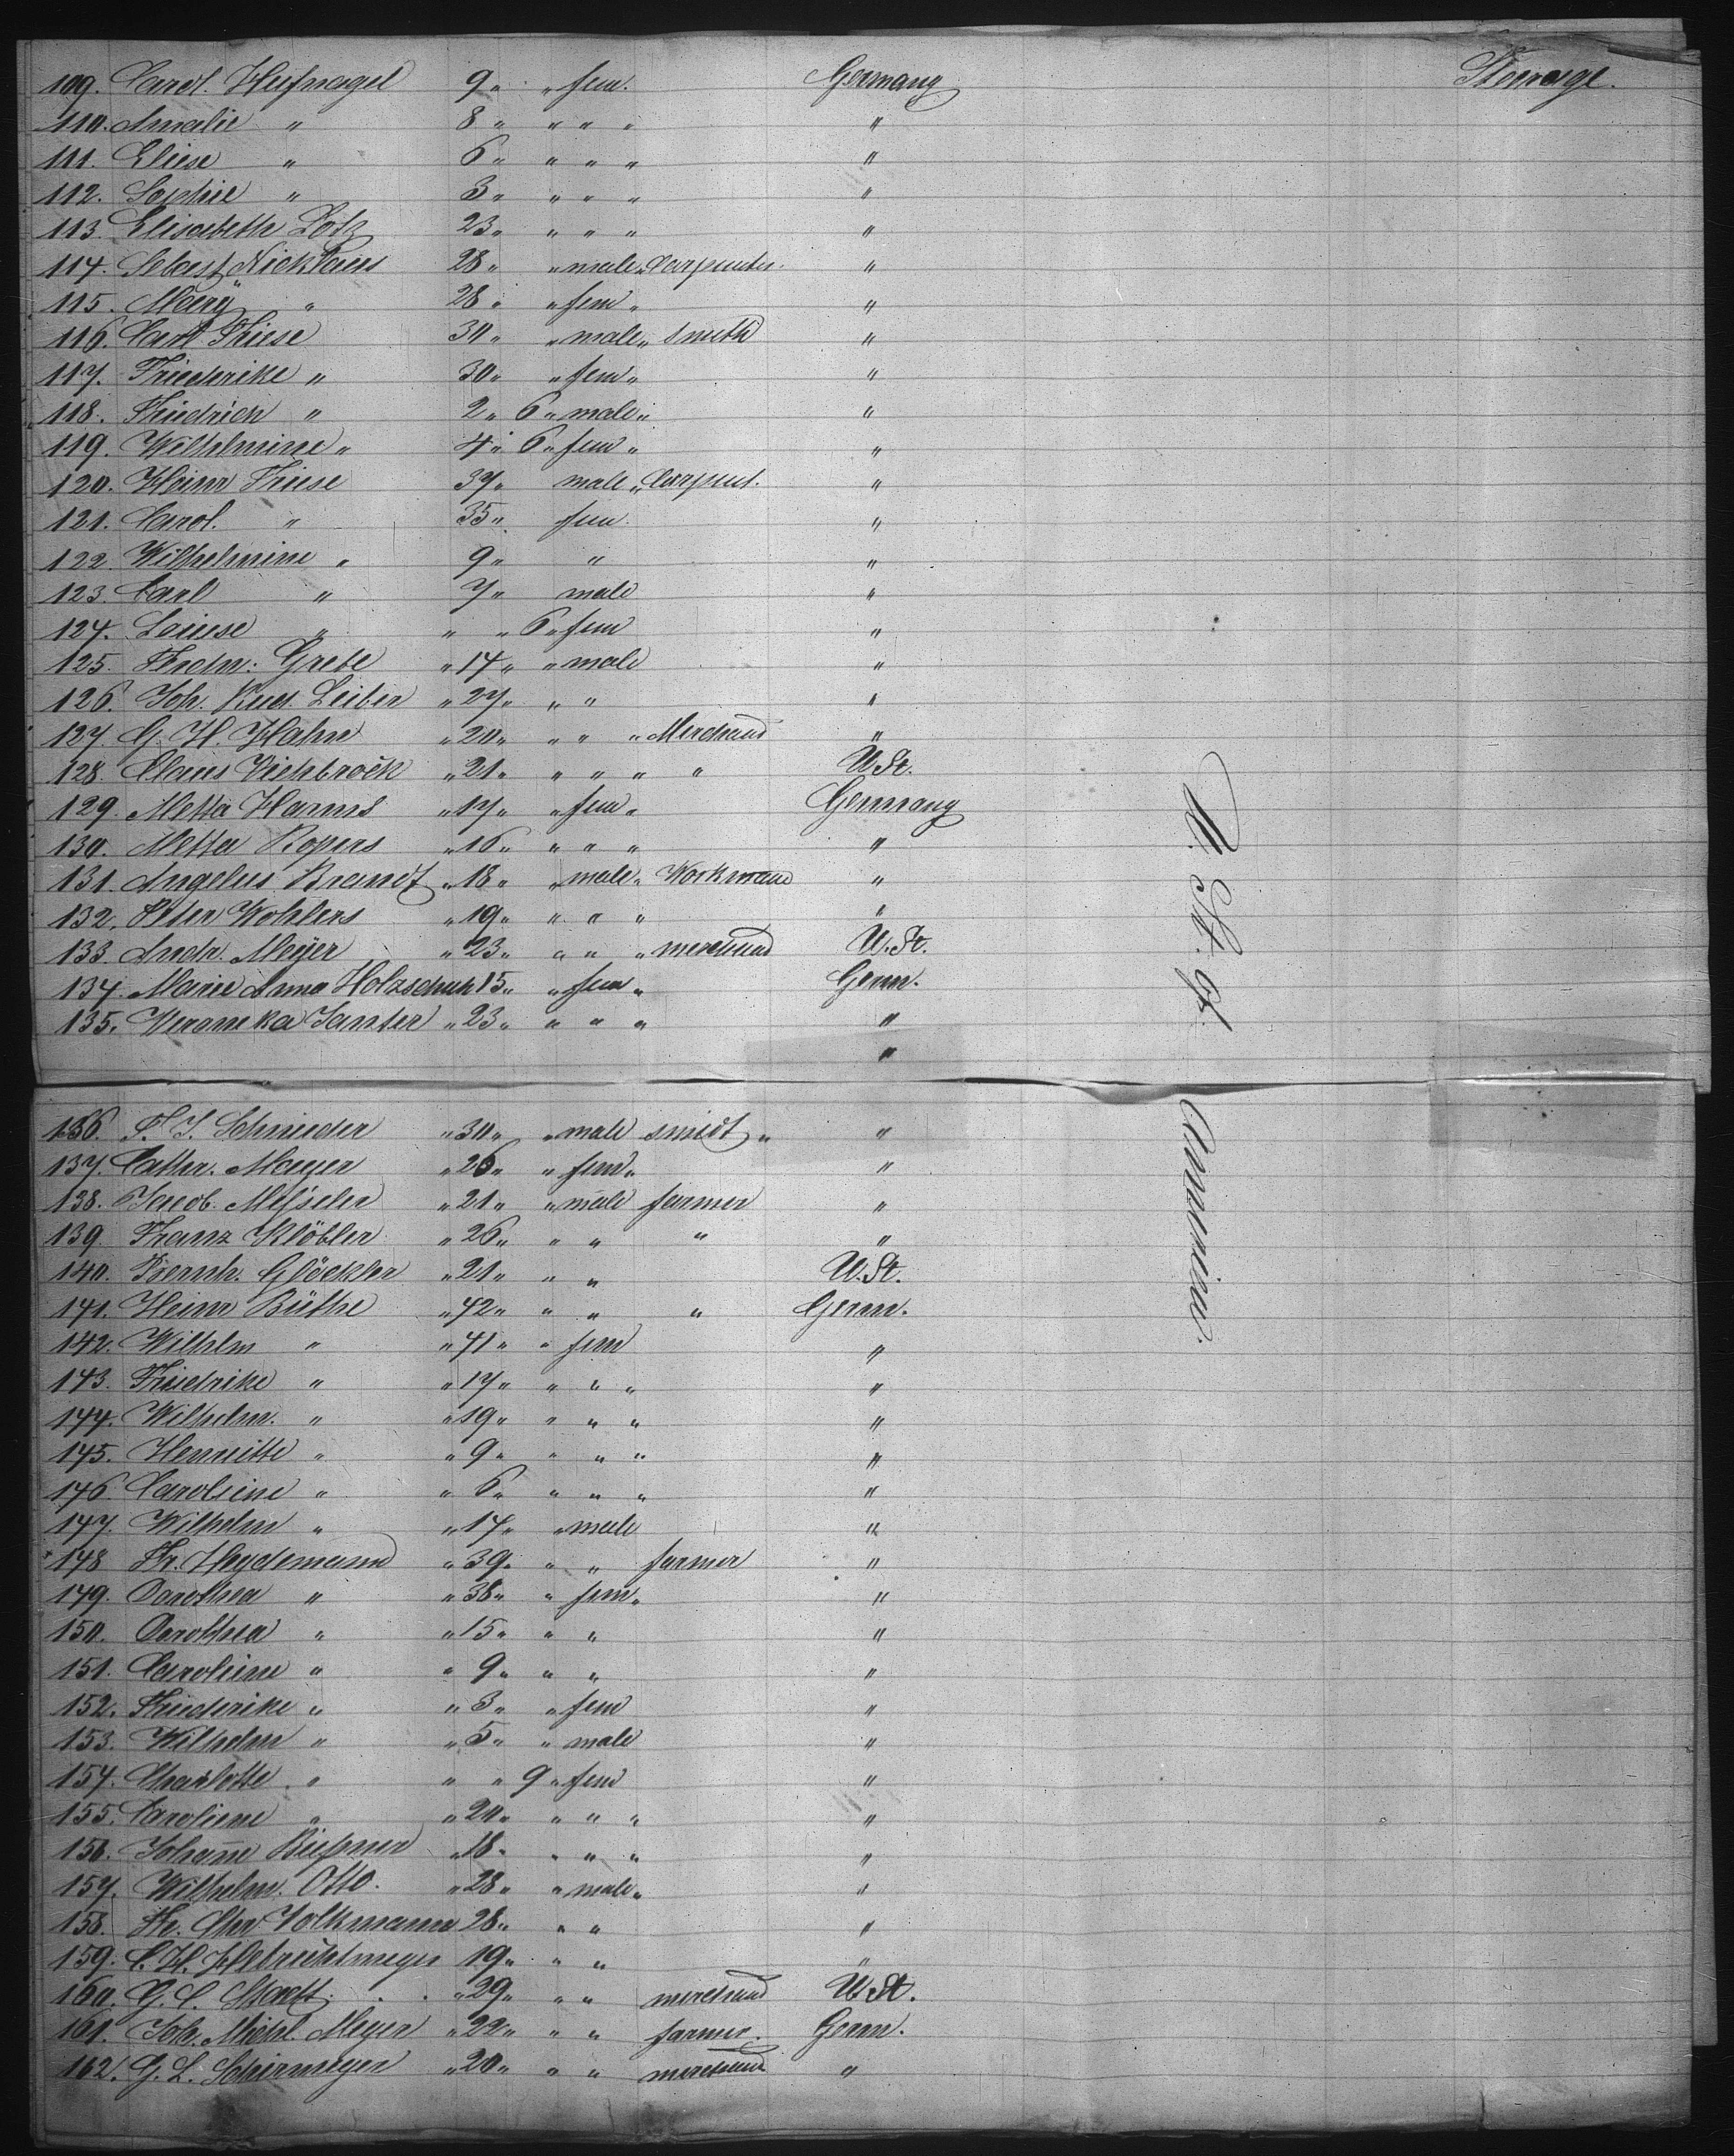 109. Carol. Hufnagel 9 " " fem. Germany Steerage.
110. Amalie " 8 " " " " "
111. Eliese " 6 " " " " "
112. Sophie " 3 " " " " "
113 Elisabeth Lotz 23 " " " " "
114. Sebast. Nicklaus 28 " " male " Carpenter. "
115. Mary " 28 " " fem " "
116. Carl Friese 30 " " male " smith "
117. Friederike " 30 " " fem " "
118. Friedrich " 2 " 6 " male " "
119. Wilhelmine " 4 " 6 " fem " "
120. Heinr Friese 37 " male " Carpent. "
121. Carol. " 35 " fem. "
122. Wilhelmine " 9 " " "
123. Carl " 7 " male "
124. Louise " " " 6 " fem "
125. Ferdn: Grebe " 14 " " male "
126. Joh. Rud. Leiber " 27 " " " "
127. G. H. Hahn " 20 " " " " Merchand "
128. Claus Viehbrock " 21 " " " " " U.St.
129. Metta Harms " 17 " " fem " Germany
130. Metta Ropers " 16 " " " " "
131. Angelus Brandt " 18 " " male " Workmann "
132. Peter Wohlers " 19 " " " " "
133. Andr. Meÿer " 23 " " " " merchand U.St.
134. Marie Anna Holzschuh 15 " " fem " Germ.
135. Veroneka Santer " 23 " " " " "
"
U. St. of America.
136. F. J. Schnieder " 30 " " male smidt " "
137. Cathr. Mayer " 26 " " fem " "
138. Jacob. Meßeler " 21 " " male farmer "
139. Franz Klöbler " 26 " " " " "
140. Bernh. Glöckler " 21 " " " U.St.
141. Heinr Büthe " 42 " " " " Germ.
142. Wilhlm " " 41 " " fem "
143. Friedrike " " 17 " " " " "
144. Wilhelm. " " 19 " " " " "
145. Henriette " " 9 " " " " "
146. Caroliene " " 6 " " " " "
147. Wilhelm " " 14 " " male "
148 Fr. Heydemann " 39 " " " farmer "
149. Dorothea " " 38 " " fem " "
150. Dorothea " " 15 " " " "
151. Caroliene " " 9 " " " "
152. Friederike " " 3 " " fem "
153. Wilhelm " " 5 " " male "
154. Charlotte " " " 9 " fem "
155. Caroliene " " 20 " " " " "
156. Johanne Büßner " 18 " " " " "
157. Wilhelm. Otto. " 28 " " male " "
158. Fr. Chr Volkmann 28 " " " "
159. C. H. Hebrichtmeyer 19 " " " "
160. G. C. Stadt. . . " 29 " " " merchand U.St.
161. Joh. Michl. Meyer " 22 " " " farmer. Germ.
162. G. L. Schirmeyer " 20 " " " merchand "